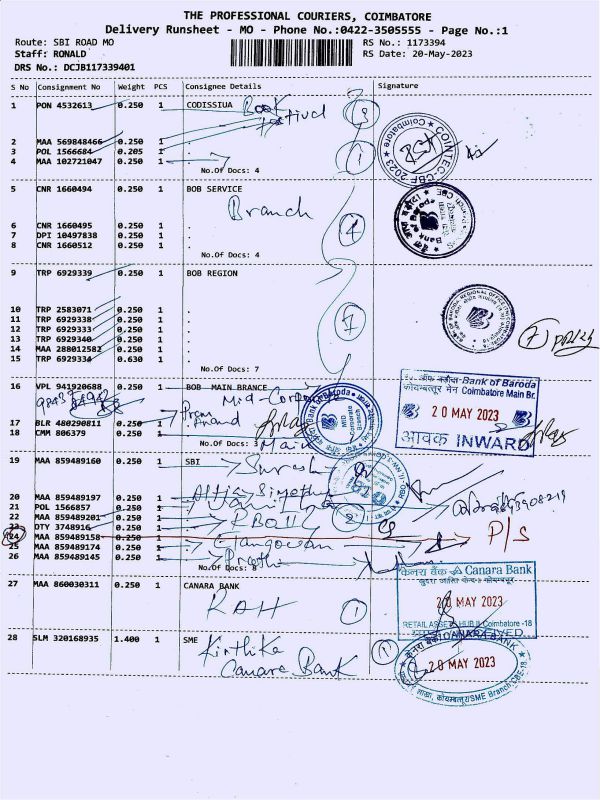 THE PROFESSIONAL COURIERS, COIMBATORE
Delivery Runsheet - MO - Phone No.:0422-3505555 - Page No.:1
Route: SBI ROAD MO
RS No.: 1173394
Staff: RONALD
RS Date: 20-May-2023
DRS No.: DCJB117339401
S No Consignment No Weight PCS Consignee Details Signature
1 PON 4532613 0.250 1 CODISSIUA Book
Festival
3
2 MAA 569848466 0.250 1 .
3 POL 1566684 0.205 1 .
4 MAA 102721047 0.250 1
1
No.Of Docs: 4
COINTEC-CBF 2023 Coimbatore
5 CNR 1660494 0.250 1 BOB SERVICE
Branch
6 CNR 1660495 0.250 1 .
7 DPI 10497838 0.250 1 .
8 CNR 1660512 0.250 1 .
4
No.Of Docs: 4
9 TRP 6929339 0.250 1 BOB REGION
10 TRP 2583071 0.250 1 .
11 TRP 6929338 0.250 1 .
12 TRP 6929333 0.250 1 .
13 TRP 6929340 0.250 1 .
14 MAA 288012582 0.250 1 .
15 TRP 6929334 0.630 1 .
7
7
No.Of Docs: 7
16 VPL 941920688 0.250 1 BOB MAIN BRANCE
Mid-Corporate
Bank of Baroda
कोयम्बत्तूर मेन Coimbatore Main Br.
20 MAY 2023
आवक INWARD
17 BLR 480290811 0.250 1 Prem
Anand
18 CMM 806379 0.250 1
Main
No.Of Docs: 3
19 MAA 859489160 0.250 1 SBI
Suresh
20 MAA 859489197 0.250 1
21 POL 1566857 0.250 1
22 MAA 859489201 0.250 1
RBO II
23 DTY 3748916 0.250 1
24 MAA 859489158 0.250 1
P/S
25 MAA 859489174 0.250 1
26 MAA 859489145 0.250 1
Preethi
No.Of Docs: 8
27 MAA 860030311 0.250 1 CANARA BANK
RAH
1
केनरा बैंक Canara Bank
20 MAY 2023
RETAIL ASSET HUB II Coimbatore -18
28 SLM 320168935 1.400 1 SME
Kirthika
Canara Bank
1
केनरा बैंक CANARA BANK
20 MAY 2023